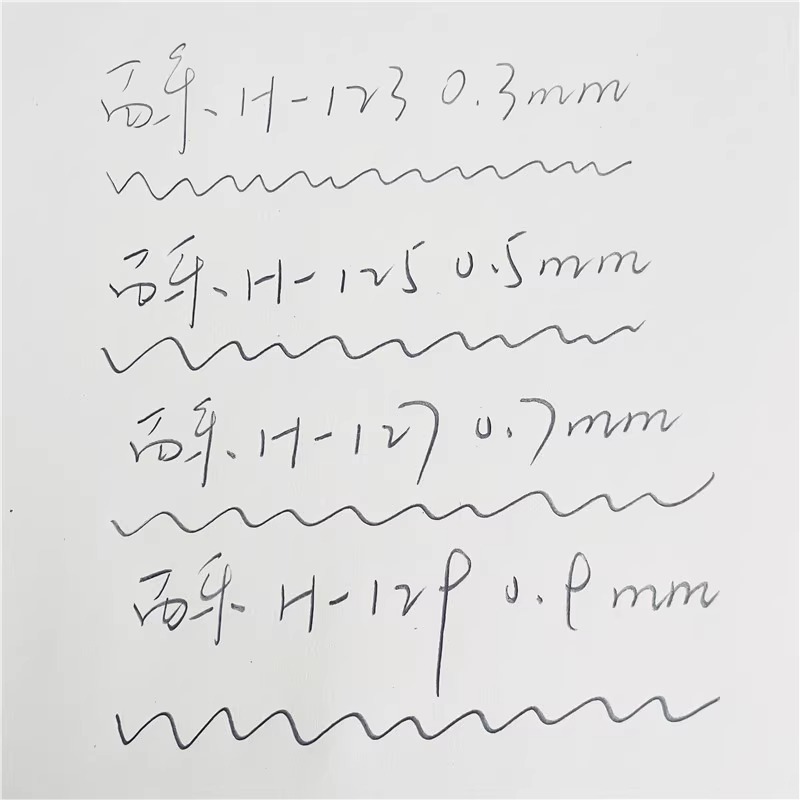 百乐 H-123 0.3mm
百乐 H-125 0.5mm
百乐 H-127 0.7mm
百乐 H-129 0.9mm